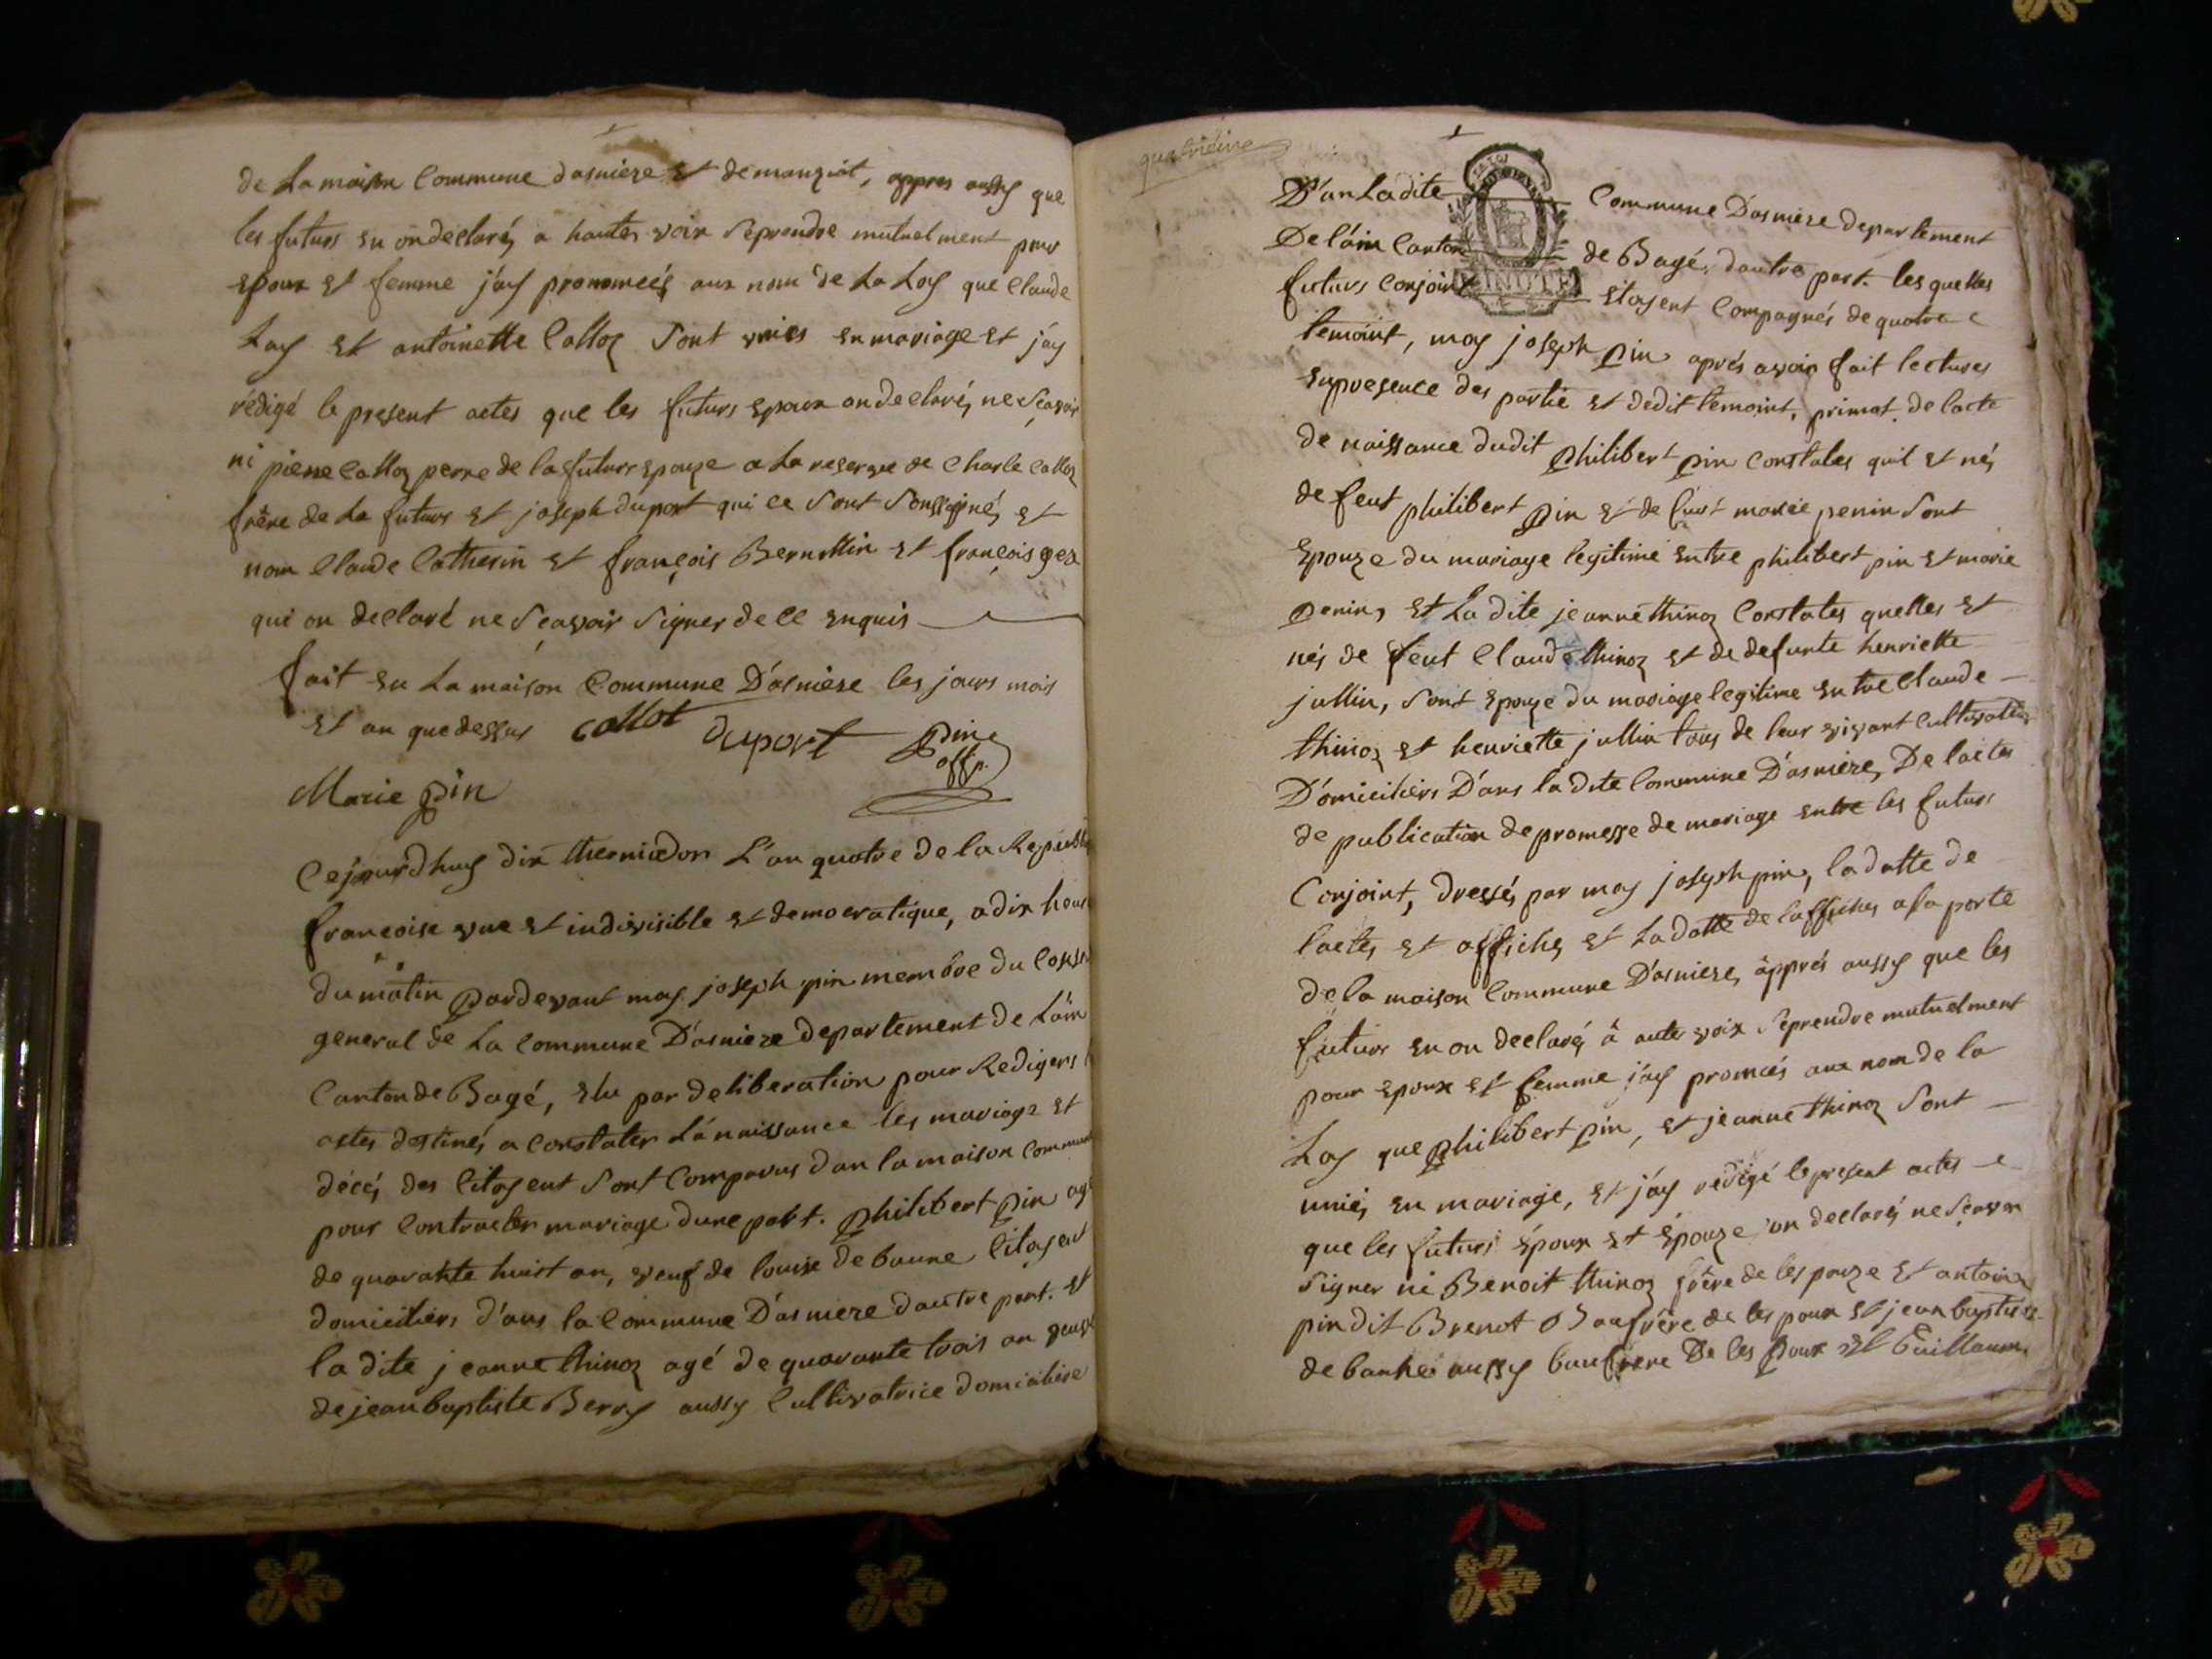 de La maison Commune dasnieze Et de manziat, appres aussy que
les futurs En on declaréz a hautes voix Seprendre mutuelment pour
Epoux Et femme j'ay prononceéz aux nom de La Loy que Claude
Lay Et antoinette Calloz Sont vnies en mariage Et j'ay
rédigé le present actes que les futurs Epoux on declaréz ne Sçavoir
ni pierre Calloz perre de la future Epouze a La reserve de Charle Calloz
frère de La future Et joseph duport qui ce Sont Soussignéz Et
nom Claude Catherin Et françois Bernollin Et françois gez
qui on declaré ne Sçavoir Signer de Ce Enquis
fait En La maison Commune D'asnieze les jours mois
Et an que dessus collot duport Pin
offp.
Marie Pin
Cejourdhuy dix thermidor L'an quatre de la Republi
francoise vne Et indivisible Et democratique, a dix heur
du matin Pardevant moy joseph pin membre du Conse
general de La Commune D'asnieze departement de L'ain
Canton de Bagé, Elu par deliberation pour Redigers
actes destinés a constater La naissance les mariage Et
décéz des Citoyent Sont Comparus dan la maison Commun
pour Contracter mariage dune part. Philibert Pin agé
de quarante huist an, veuf de louise de baune Citoyent
domiciliers d'ans la Commune D'asnieze dautre part. Et
la dite jeanne thinoz agé de quarante trois an veuve
de jean baptiste Berry aussy Cultivatrice domicilière
quatrieme
D'an Ladite Commune D'asnieze departement
De l'ain Canton de Bagé, dautre part. les quelles
futurs Conjoint Etoyent Compagnés de quatre
MINUTE
temoint, moy joseph Pin aprés avoir fait lectures
En presence des partie Et dedit temoint, primat. de lacte
de naissance dudit Philibert Pin Constates quil Et néz
de feut philibert Pin Et de feut marie penin Sont
Epouze du mariage legitime Entre philibert pin Et marie
Penin, Et La dite jeanne thinoz Constates quelles Et
nés de feut Claude thinoz Et de defunte henriette
jullin, Sont Epouze du mariage legitime Entre Claude
thinoz Et henriette jullin tous de leur vivant Cultivateur
D'omiciliers D'ans la dite Commune D'asnieze, De lactes
de publication de promesse de mariage Entre les futurs
Conjoint, dressés par moy joseph pin, la datte de
lactes Et affiches Et La datte de laffiches a la porte
de la maison Commune D'asnieze, apprés aussy que les
futurs En on declaréz a aute voix Seprendre mutuelment
pour Epoux Et femme j'ay promcés aux nom de la
Loy que Philibert Pin, Et jeanne thinoz Sont
uniéz En mariage, Et j'ay redigé le present actes
que les futurs Epoux Et Epouze on declaréz ne Sçavoir
Signer ni Benoit thinoz frère de les pouze Et antoine
pin dit Brenot Baufrère de les poux Et jean baptiste
de banhe aussy baufrere De les poux Et Guillaume